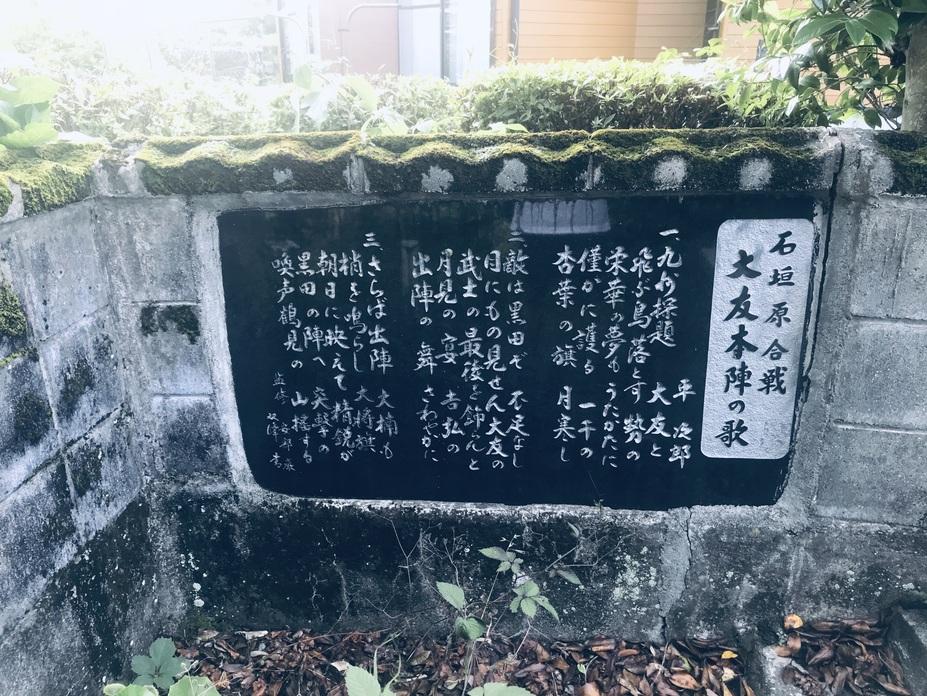 石垣原合戦
大友本陣の歌
平 次郎
一、九州探題 大友と
飛ぶ鳥落とす 勢の
栄華の夢も うたかたに
僅かに護る 一千の
杏葉の旗 月寒し
二、敵は黒田ぞ 不足なし
目にもの見せん大友の
武士の最後を飾らんと
月見の宴 吉弘の
出陣の舞 さわやかに
三、さらば出陣 大楠も
梢を鳴らし 大将旗
朝日に映えて 精鋭が
黒田の陣へ 突撃の
喚声鶴見の 山揺する